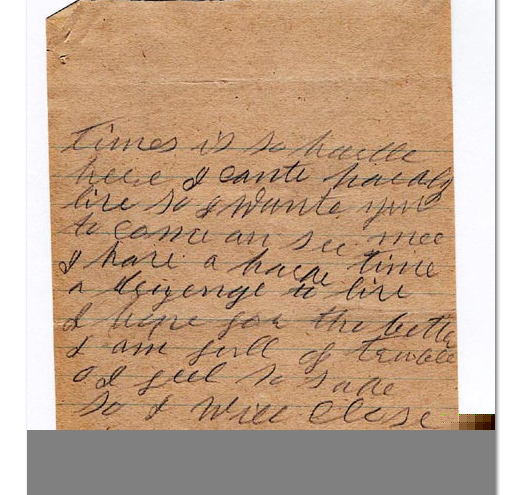 Times is so harde
here I cante hardly
live so I Wante you
to come an see mee
I have a harde time
a to live
I hope for the bette
I am full of trouble
O I feel so sade
so I Will Close